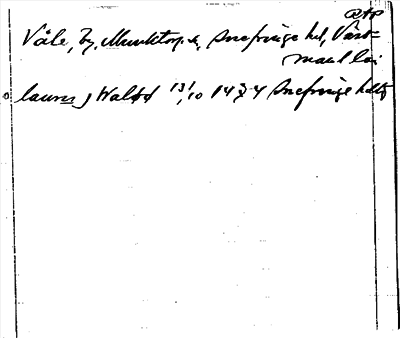 Våle, by, Munktorp s, Snefringe hd, Väst-
manl län
laurens j Waløø 13/10 1434 Snefringe hdtg